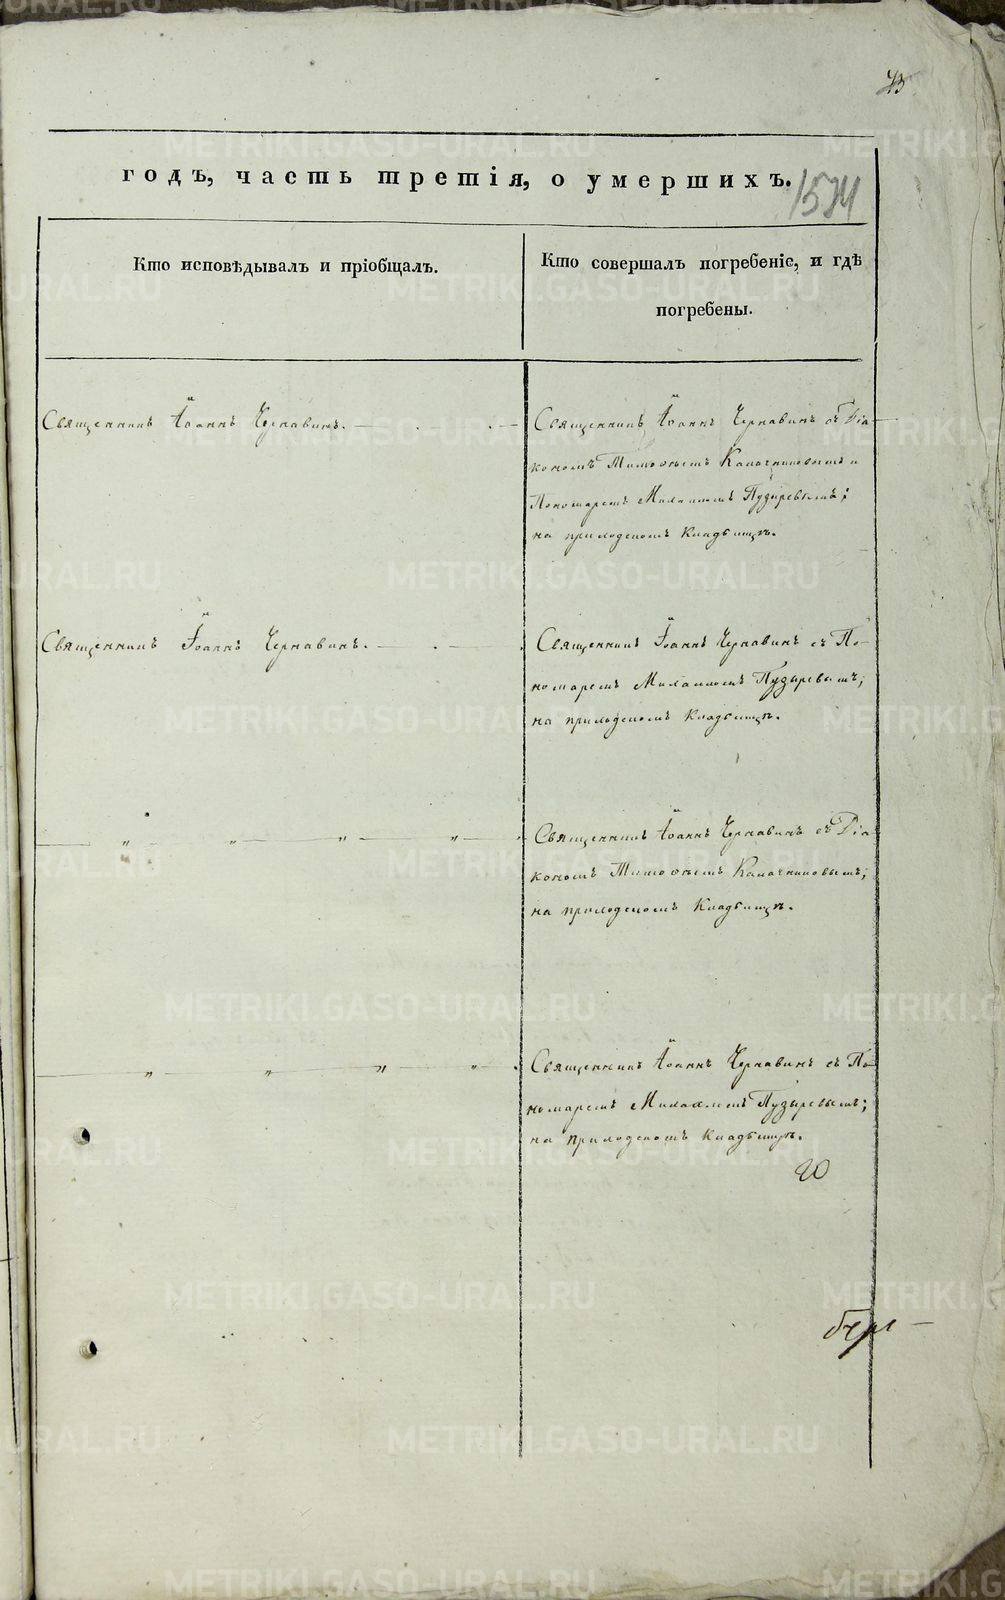 годъ, часть третія, о умершихъ.
1574
Кто исповѣдывалъ и пріобщалъ.
Кто совершалъ погребеніе, и гдѣ
погребены.
Священникъ Іоаннъ Чернавинъ.
Священникъ Іоаннъ Чернавинъ съ Діа
кономъ Тимоѳеемъ Калачниковымъ и
Пономаремъ Михаиломъ Пузыревымъ;
на приходскомъ кладбищѣ.
Священникъ Іоаннъ Чернавинъ.
Священникъ Іоаннъ Чернавинъ съ По-
номаремъ Михаиломъ Пузыревымъ;
на приходскомъ кладбищѣ.
„ „ „ „
Священникъ Іоаннъ Чернавинъ съ Діа
кономъ Тимоѳеемъ Калачниковымъ;
на приходскомъ кладбищѣ.
„ „ „ „
Священникъ Іоаннъ Чернавинъ съ По-
номаремъ Михаиломъ Пузыревымъ;
на приходскомъ кладбищѣ.
METRIKI.GASO-URAL.RU